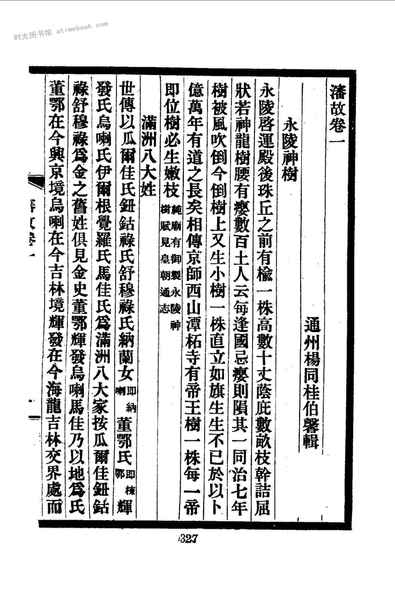 时光图书馆 etimebook.com
瀋故卷一
通州楊同桂伯馨輯
永陵神樹
永陵啓運殿後珠丘之前有楡一株高數十丈蔭庇數畝枝幹詰屈
狀若神龍樹腰有癭數百土人云每逢國忌癭則隕其一同治七年
樹被風吹倒今倒樹上又生小樹一株直立如旗生生不已於以卜
億萬年有道之長矣相傳京師西山潭柘寺有帝王樹一株每一帝
即位樹必生嫩枝純廟有御製永陵神樹賦見皇朝通志
滿洲八大姓
世傳以瓜爾佳氏鈕鈷祿氏舒穆祿氏納蘭女即納喇董鄂氏即棟鄂輝
發氏烏喇氏伊爾根覺羅氏馬佳氏爲滿洲八大家按瓜爾佳鈕鈷
祿舒穆祿爲金之舊姓俱見金史董鄂輝發烏喇馬佳乃以地爲氏
董鄂在今興京境烏喇在今吉林境輝發在今海龍吉林交界處而
故卷一
327